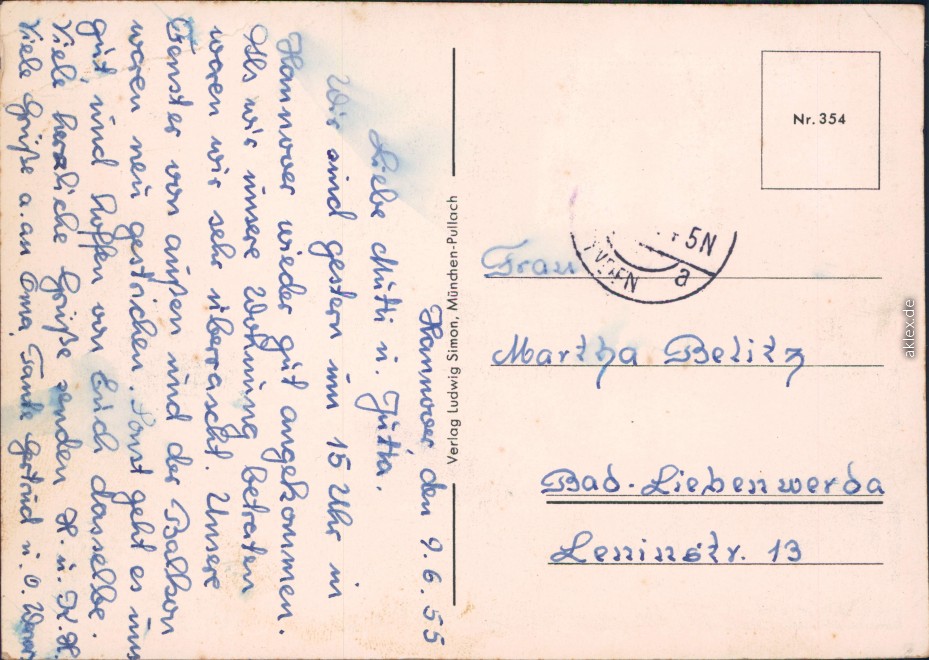 Hannover, den 9.6.55
Liebe Mutti u. Jutta.
Wir sind gestern um 15 Uhr in
Hannover wieder gut angekommen.
Als wir unsere Wohnung betraten
waren wir sehr überrascht. Unsere
Fenster von außen und der Balkon
waren neu gestrichen. Sonst geht es uns
gut und hoffen von Euch dasselbe.
Viele herzliche Grüße senden H. u. K.H.
Viele Grüße a. an Oma, Tante Gertrud u. O.
Verlag Ludwig Simon, München-Pullach
Nr. 354
5N
a
Frau
Martha Belitz
Bad-Liebenwerda
Leninstr. 13
aklex.de